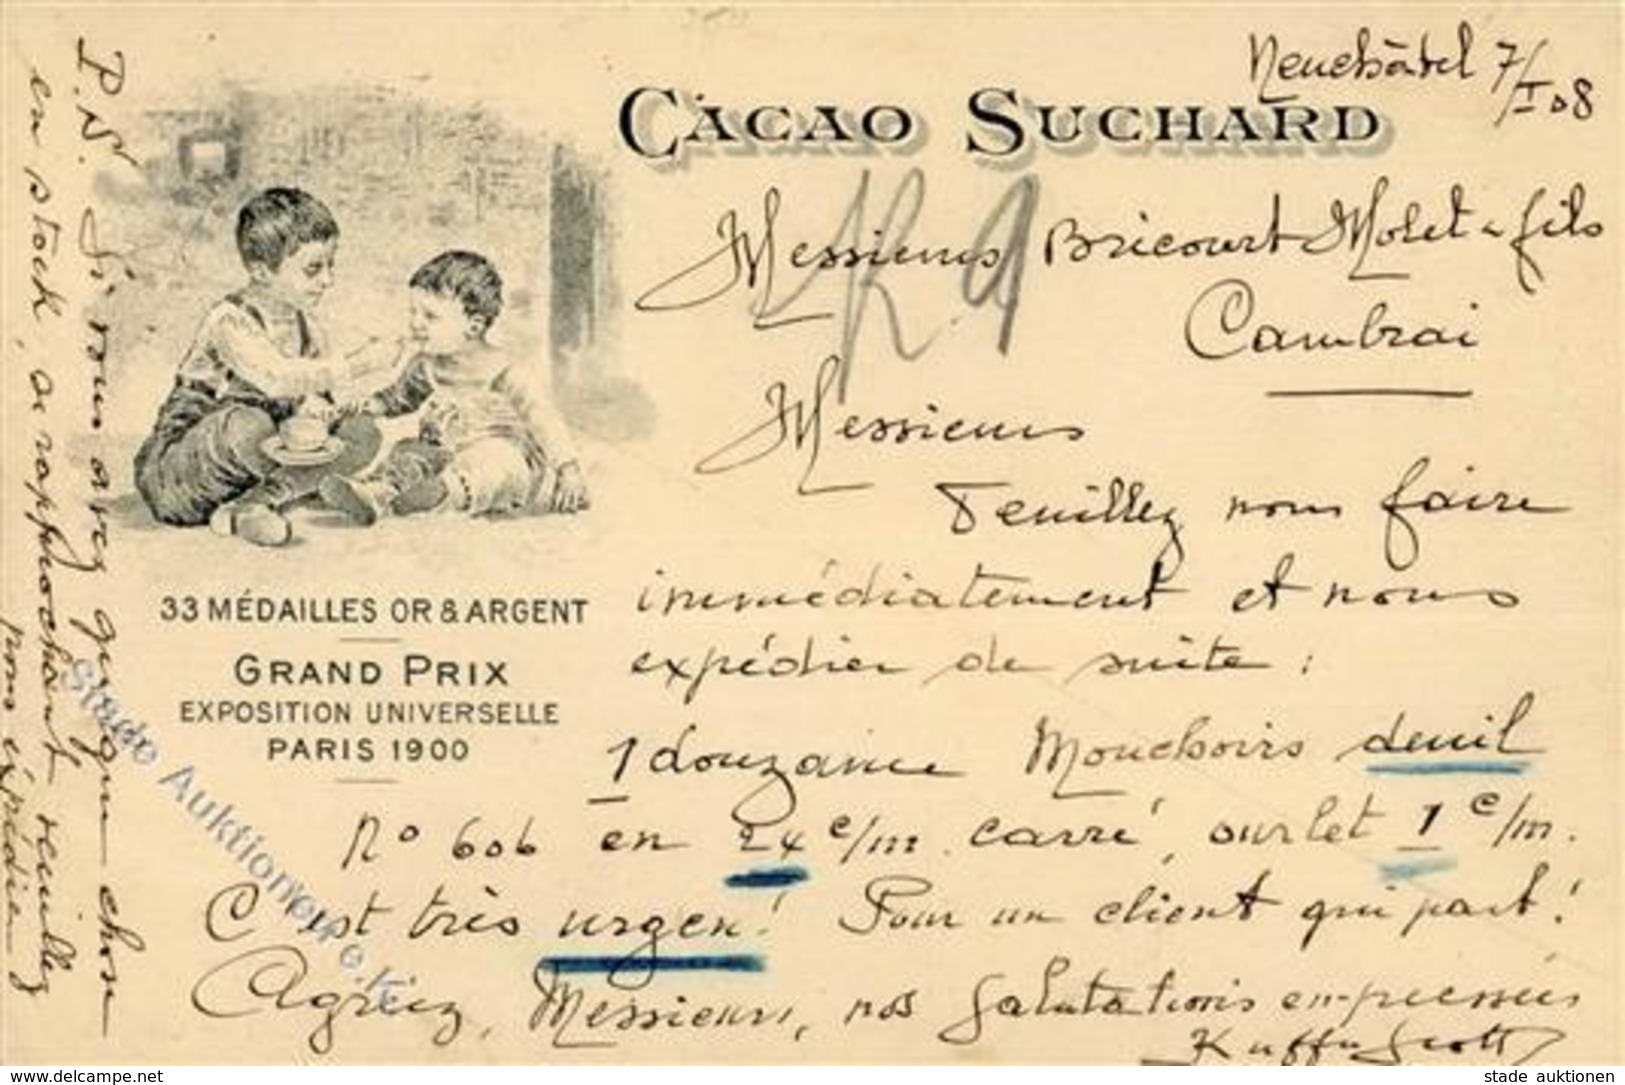 Neuchâtel 7/I 08
CACAO SUCHARD
Messieurs Bricourt Molet & fils
Cambrai
Messieurs
Veuillez nous faire
immédiatement et nous
expédier de suite :
1 douzaine Mouchoirs deuil
No 606 en 24 c/m carré, ourlet 1 c/m.
C'est très urgent! Pour un client qui part!
Agréez, Messieurs, nos Salutations empressées
Kuffer Scott
33 MÉDAILLES OR & ARGENT
GRAND PRIX
EXPOSITION UNIVERSELLE
PARIS 1900
P.S. Si vous avez quelque chose
en stock, se rapprochant veuillez
nous expédier
Stade Auktionen
www.delcampe.net
stade auktionen